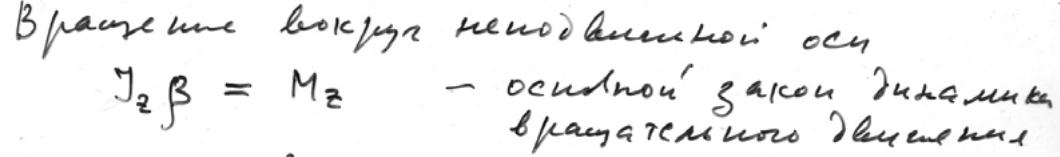 Вращение вокруг неподвижной оси
J_z β = M_z — основной закон динамики
вращательного движения